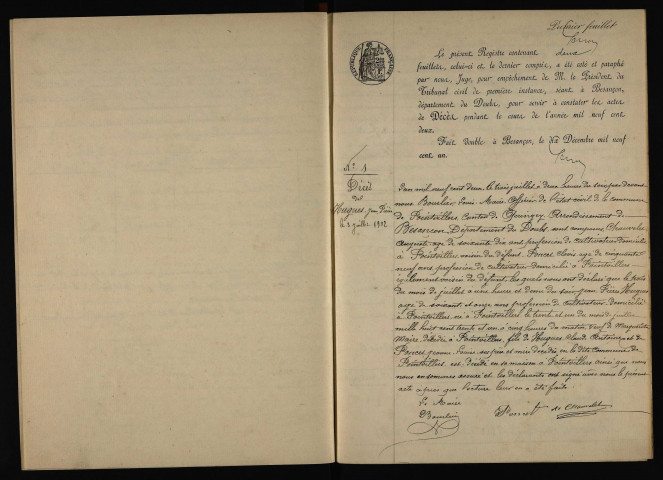 Premier feuillet
Le présent Registre contenant deux
feuillets, celui-ci et le dernier compris, a été coté et paraphé
par nous, Juge, pour empêchement de M. le Président du
Tribunal civil de première instance, séant à Besançon,
département du Doubs, pour servir à constater les actes
de Décès pendant le cours de l'année mil neuf cent
deux.
Fait double à Besançon, le dix Décembre mil neuf
cent un.
RÉPUBLIQUE FRANÇAISE
N° 1
Décès
de
Hugues,
le 3 juillet 1902
L'an mil neuf cent deux le trois juillet à deux heures du soir par devant
nous Bourlier Maire officier de l'état civil de la commune
de Pointvillers Canton de Quingey Arrondissement de
Besançon Département du Doubs, sont comparus
August age de soixante dix ans profession de cultivateur domicilié
à Pointvillers voisin du défunt, age de cinquante
neuf ans profession de cultivateur domicilié à Pointvillers
également voisin du défunt, les quels nous ont déclaré que le trois
du mois de juillet à une heure et demi du soir Jean Pierre Hugues
age de soixante et onze ans profession de cultivateur domicilié
à Pointvillers, né à Pointvillers le trente et un du mois de
mille huit cent trente et un à cinq heures du matin veuf de Marguerite
Maire décédée à Pointvillers, fils de Hugues Claude et de
décédés en la dite Commune de
Pointvillers, est décédé en sa maison à Pointvillers ainsi que nous
nous en sommes assuré et les déclarants ont signé avec nous le présent
acte après que lecture leur en a été faite.
Le Maire
Bourlier